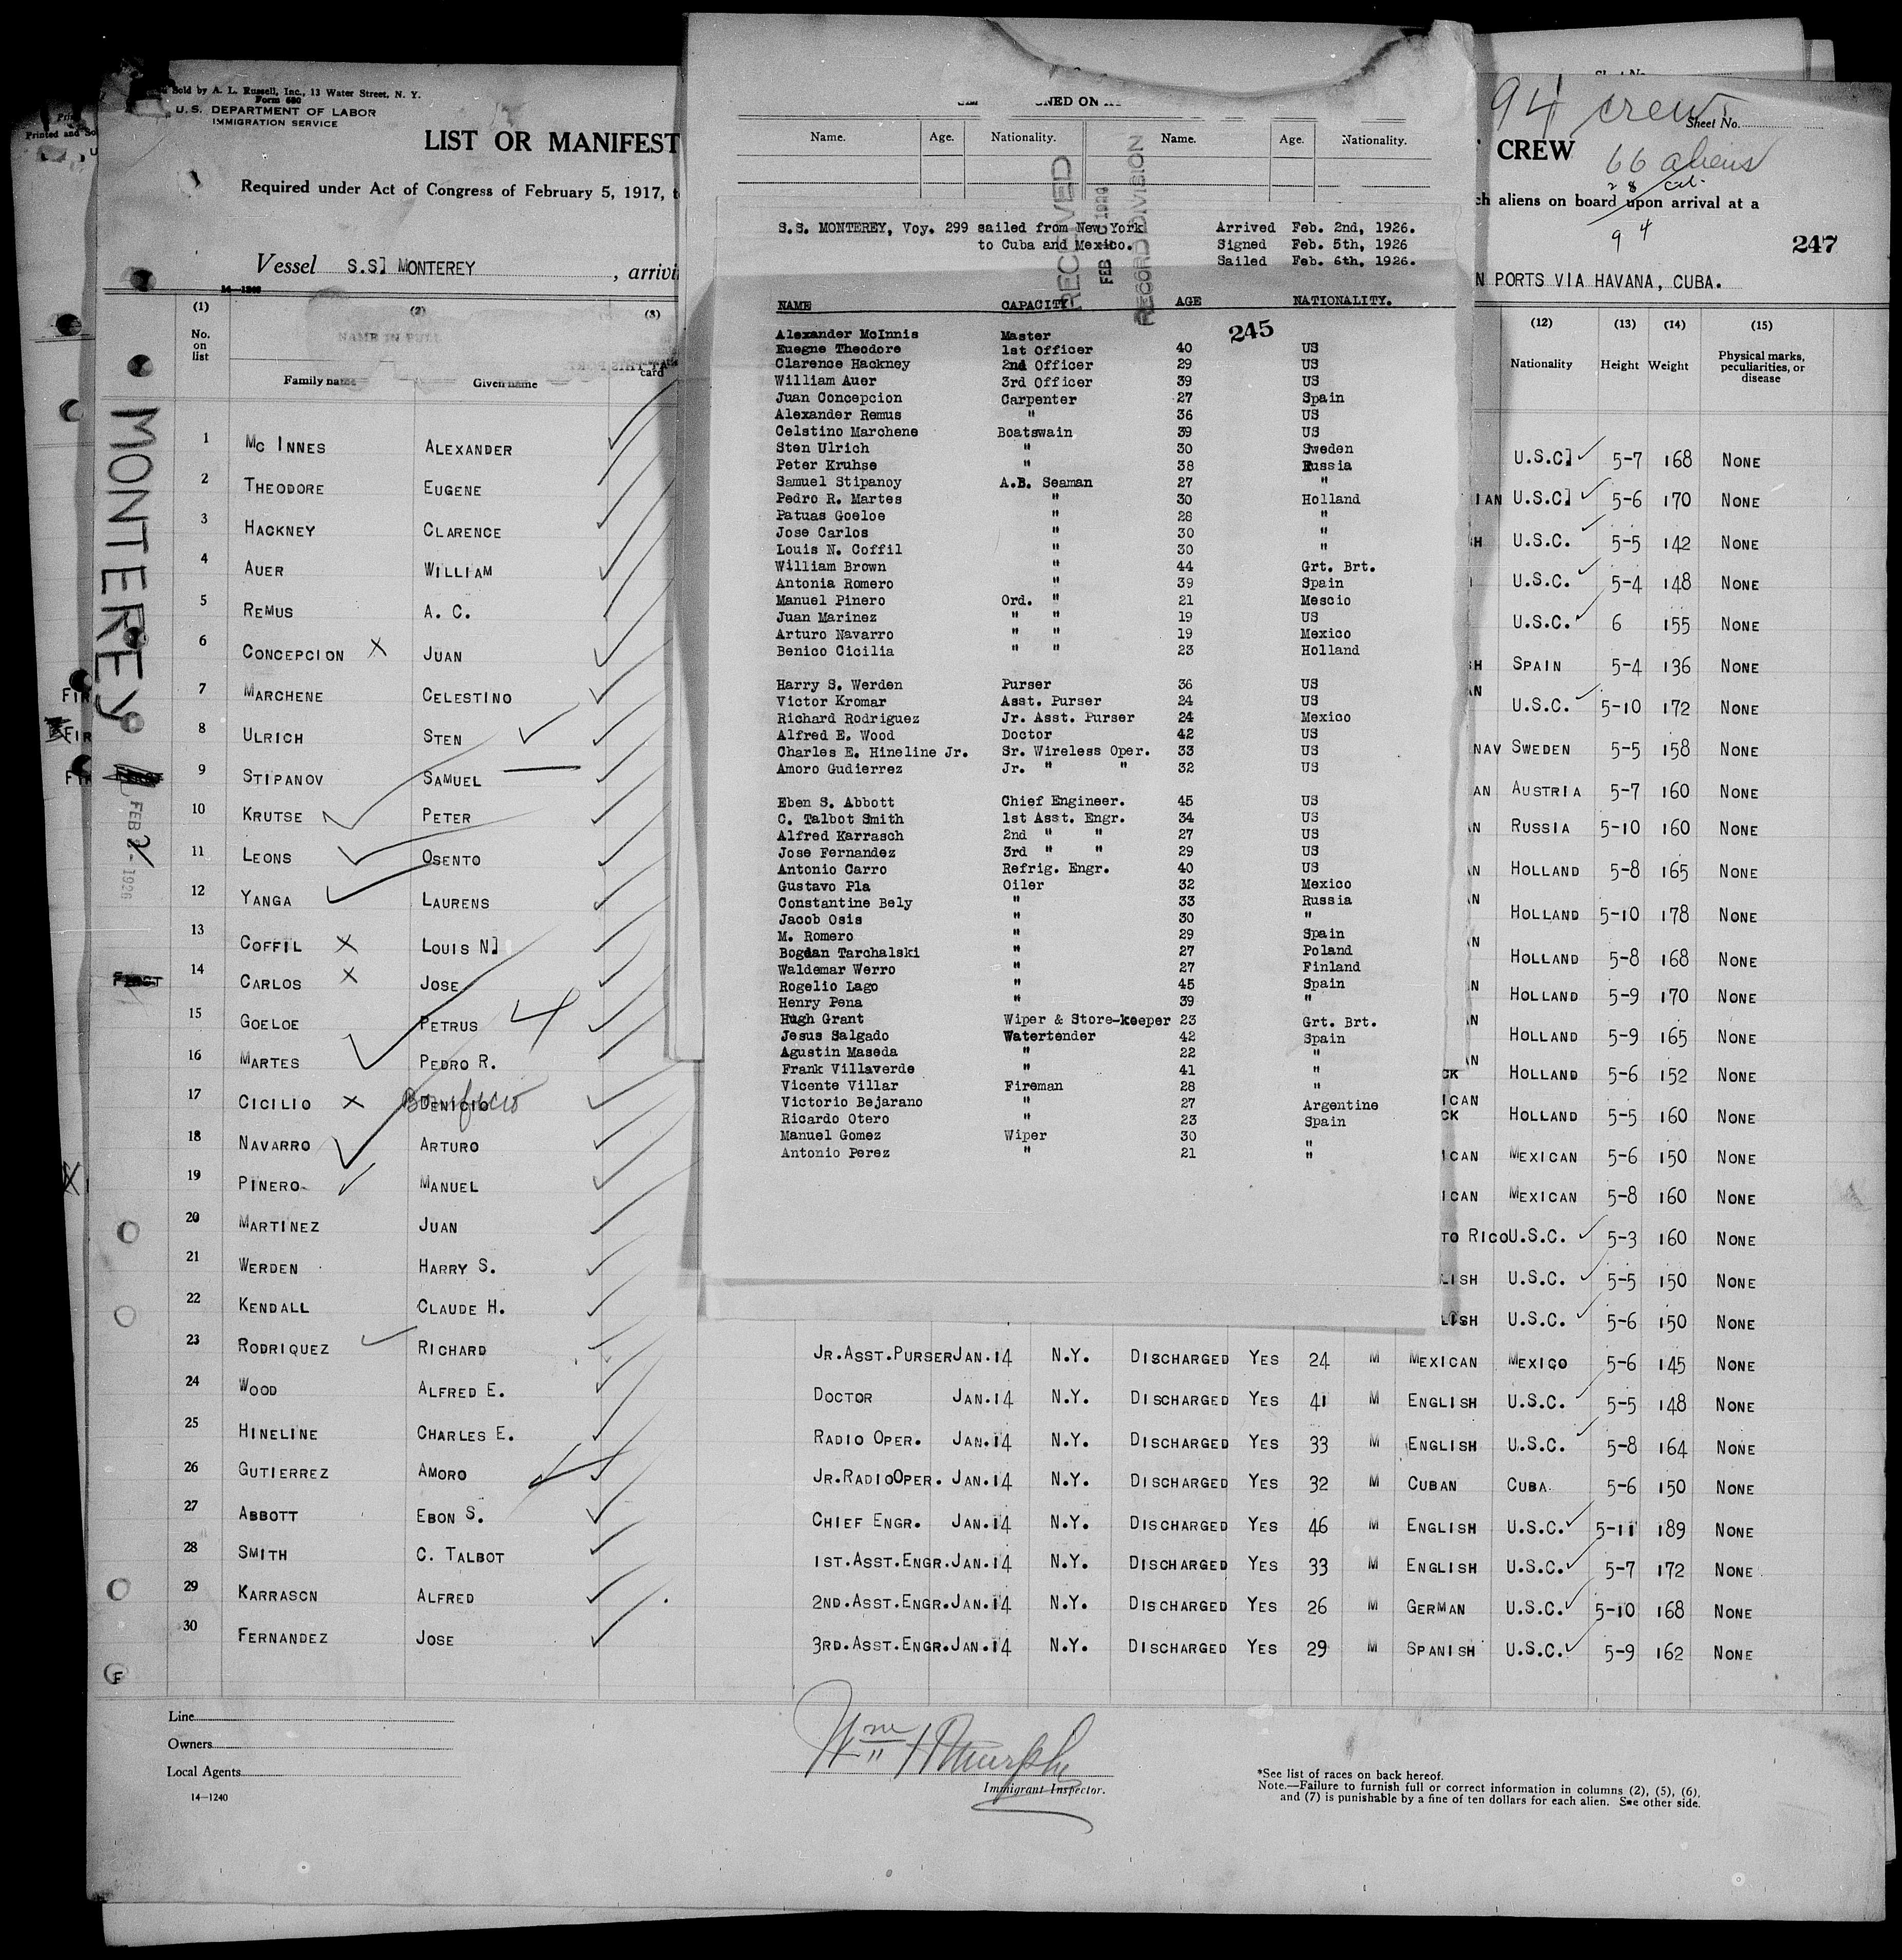 Sold by A. L. Russell, Inc., 13 Water Street, N. Y.
Form 680
U. S. DEPARTMENT OF LABOR
IMMIGRATION SERVICE
Printed and So
LIST OR MANIFEST
CREW
Sheet No.
94 crew
66 aliens
28 cit.
94
Required under Act of Congress of February 5, 1917, t
ch aliens on board upon arrival at a
247
Vessel S.S] MONTEREY , arrivi
N PORTS VIA HAVANA, CUBA.
14-1240
MONTEREY
FEB 2 - 1926
FIR
FIR
FIR
FIRST
(1) No. on list
(2) NAME IN FULL
Family name Given name
(3)
card
(12) Nationality
(13) Height
(14) Weight
(15) Physical marks, peculiarities, or disease
1 MC INNES ALEXANDER U.S.C] 5-7 168 NONE
2 THEODORE EUGENE IAN U.S.C] 5-6 170 NONE
3 HACKNEY CLARENCE SH U.S.C. 5-5 142 NONE
4 AUER WILLIAM U.S.C. 5-4 148 NONE
5 REMUS A. C. U.S.C. 6 155 NONE
6 CONCEPCION X JUAN SH SPAIN 5-4 136 NONE
7 MARCHENE CELESTINO AN U.S.C. 5-10 172 NONE
8 ULRICH STEN NAV SWEDEN 5-5 158 NONE
9 STIPANOV SAMUEL AN AUSTRIA 5-7 160 NONE
10 KRUTSE PETER N RUSSIA 5-10 160 NONE
11 LEONS OSENTO AN HOLLAND 5-8 165 NONE
12 YANGA LAURENS N HOLLAND 5-10 178 NONE
13 COFFIL X LOUIS N] N HOLLAND 5-8 168 NONE
14 CARLOS X JOSE N HOLLAND 5-9 170 NONE
15 GOELOE PETRUS N HOLLAND 5-9 165 NONE
16 MARTES PEDRO R. AN CK HOLLAND 5-6 152 NONE
17 CICILIO X DENICIO Bonifucio ICAN CK HOLLAND 5-5 160 NONE
18 NAVARRO ARTURO ICAN MEXICAN 5-6 150 NONE
19 PINERO MANUEL ICAN MEXICAN 5-8 160 NONE
20 MARTINEZ JUAN TO RICO U.S.C. 5-3 160 NONE
21 WERDEN HARRY S. LISH U.S.C. 5-5 150 NONE
22 KENDALL CLAUDE H. LISH U.S.C. 5-6 150 NONE
23 RODRIQUEZ RICHARD JR.ASST.PURSER JAN.14 N.Y. DISCHARGED YES 24 M MEXICAN MEXICO 5-6 145 NONE
24 WOOD ALFRED E. DOCTOR JAN.14 N.Y. DISCHARGED YES 41 M ENGLISH U.S.C. 5-5 148 NONE
25 HINELINE CHARLES E. RADIO OPER. JAN.14 N.Y. DISCHARGED YES 33 M ENGLISH U.S.C. 5-8 164 NONE
26 GUTIERREZ AMORO JR.RADIOOPER. JAN.14 N.Y. DISCHARGED YES 32 M CUBAN CUBA 5-6 150 NONE
27 ABBOTT EBON S. CHIEF ENGR. JAN.14 N.Y. DISCHARGED YES 46 M ENGLISH U.S.C. 5-11 189 NONE
28 SMITH C. TALBOT 1ST.ASST.ENGR. JAN.14 N.Y. DISCHARGED YES 33 M ENGLISH U.S.C. 5-7 172 NONE
29 KARRASCN ALFRED 2ND.ASST.ENGR. JAN.14 N.Y. DISCHARGED YES 26 M GERMAN U.S.C. 5-10 168 NONE
30 FERNANDEZ JOSE 3RD.ASST.ENGR. JAN.14 N.Y. DISCHARGED YES 29 M SPANISH U.S.C. 5-9 162 NONE
Line
Owners
Local Agents
14-1240
Wm H Murphy
Immigrant Inspector.
*See list of races on back hereof.
Note.—Failure to furnish full or correct information in columns (2), (5), (6),
and (7) is punishable by a fine of ten dollars for each alien. See other side.
NED ON
Name. Age. Nationality. Name. Age. Nationality.
RECEIVED
FEB 1926
RECORD DIVISION
S.S. MONTEREY, Voy. 299 sailed from New York Arrived Feb. 2nd, 1926.
to Cuba and Mexico. Signed Feb. 5th, 1926
Sailed Feb. 6th, 1926.
NAME CAPACITY AGE NATIONALITY.
245
Alexander McInnis Master
Euegne Theodore 1st Officer 40 US
Clarence Hackney 2nd Officer 29 US
William Auer 3rd Officer 39 US
Juan Concepcion Carpenter 27 Spain
Alexander Remus " 36 US
Celstino Marchene Boatswain 39 US
Sten Ulrich " 30 Sweden
Peter Kruhse " 38 Russia
Samuel Stipanoy A.B. Seaman 27 "
Pedro R. Martes " 30 Holland
Patuas Goeloe " 28 "
Jose Carlos " 30 "
Louis N. Coffil " 30 "
William Brown " 44 Grt. Brt.
Antonia Romero " 39 Spain
Manuel Pinero Ord. " 21 Mescio
Juan Marinez " " 19 US
Arturo Navarro " " 19 Mexico
Benico Cicilia " " 23 Holland
Harry S. Werden Purser 36 US
Victor Kromar Asst. Purser 24 US
Richard Rodriguez Jr. Asst. Purser 24 Mexico
Alfred E. Wood Doctor 42 US
Charles E. Hineline Jr. Sr. Wireless Oper. 33 US
Amoro Gudierrez Jr. " " 32 US
Eben S. Abbott Chief Engineer. 45 US
C. Talbot Smith 1st Asst. Engr. 34 US
Alfred Karrasch 2nd " " 27 US
Jose Fernandez 3rd " " 29 US
Antonio Carro Refrig. Engr. 40 US
Gustavo Pla Oiler 32 Mexico
Constantine Bely " 33 Russia
Jacob Osis " 30 "
M. Romero " 29 Spain
Bogdan Tarchalski " 27 Poland
Waldemar Werro " 27 Finland
Rogelio Lago " 45 Spain
Henry Pena " 39 "
Hugh Grant Wiper & Store-keeper 23 Grt. Brt.
Jesus Salgado Watertender 42 Spain
Agustin Maseda " 22 "
Frank Villaverde " 41 "
Vicente Villar Fireman 28 "
Victorio Bejarano " 27 Argentine
Ricardo Otero " 23 Spain
Manuel Gomez Wiper 30 "
Antonio Perez " 21 "